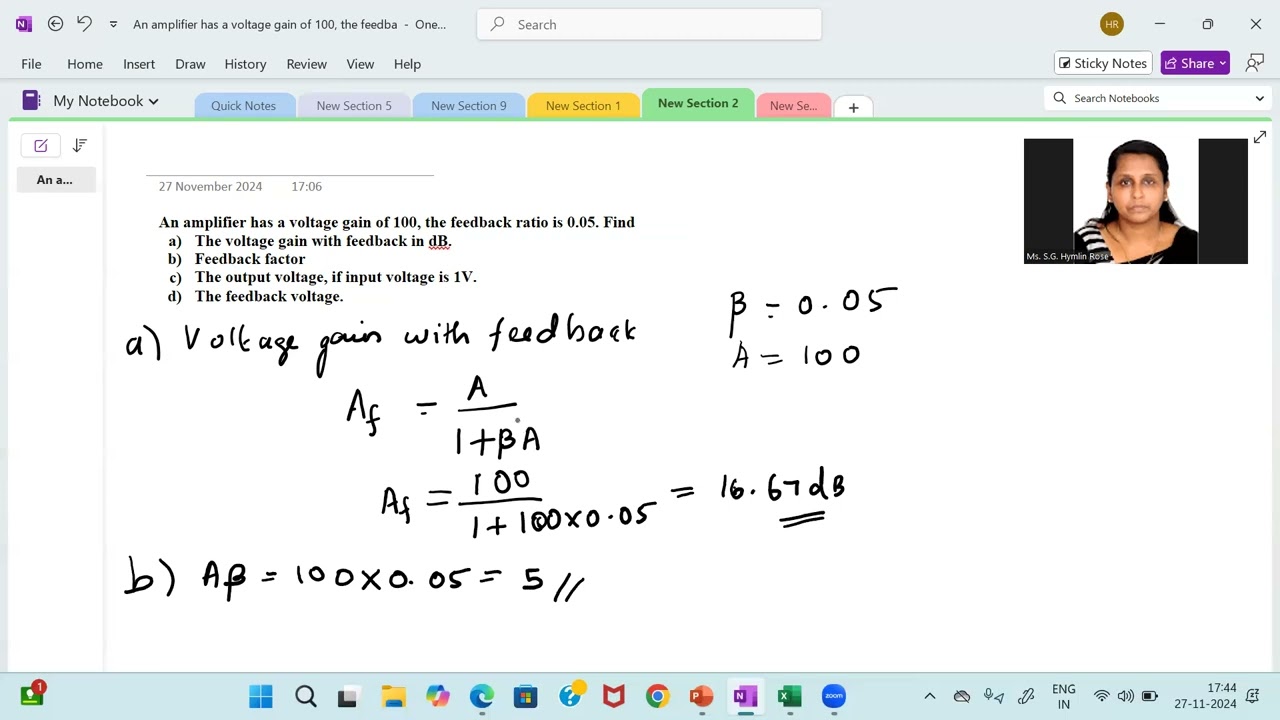 An amplifier has a voltage gain of 100, the feedba - One...
Search
HR
File Home Insert Draw History Review View Help
Sticky Notes Share
My Notebook
Quick Notes New Section 5 New Section 9 New Section 1 New Section 2 New Se... +
Search Notebooks
An a...
27 November 2024 17:06
An amplifier has a voltage gain of 100, the feedback ratio is 0.05. Find
a) The voltage gain with feedback in dB.
b) Feedback factor
c) The output voltage, if input voltage is 1V.
d) The feedback voltage.
Ms. S.G. Hymlin Rose
β = 0.05
A = 100
a) Voltage gain with feedback
Af = A / 1+βA
Af = 100 / 1+100×0.05 = 16.67dB
b) Aβ = 100×0.05 = 5 //
1
zoom
ENG
IN
17:44
27-11-2024